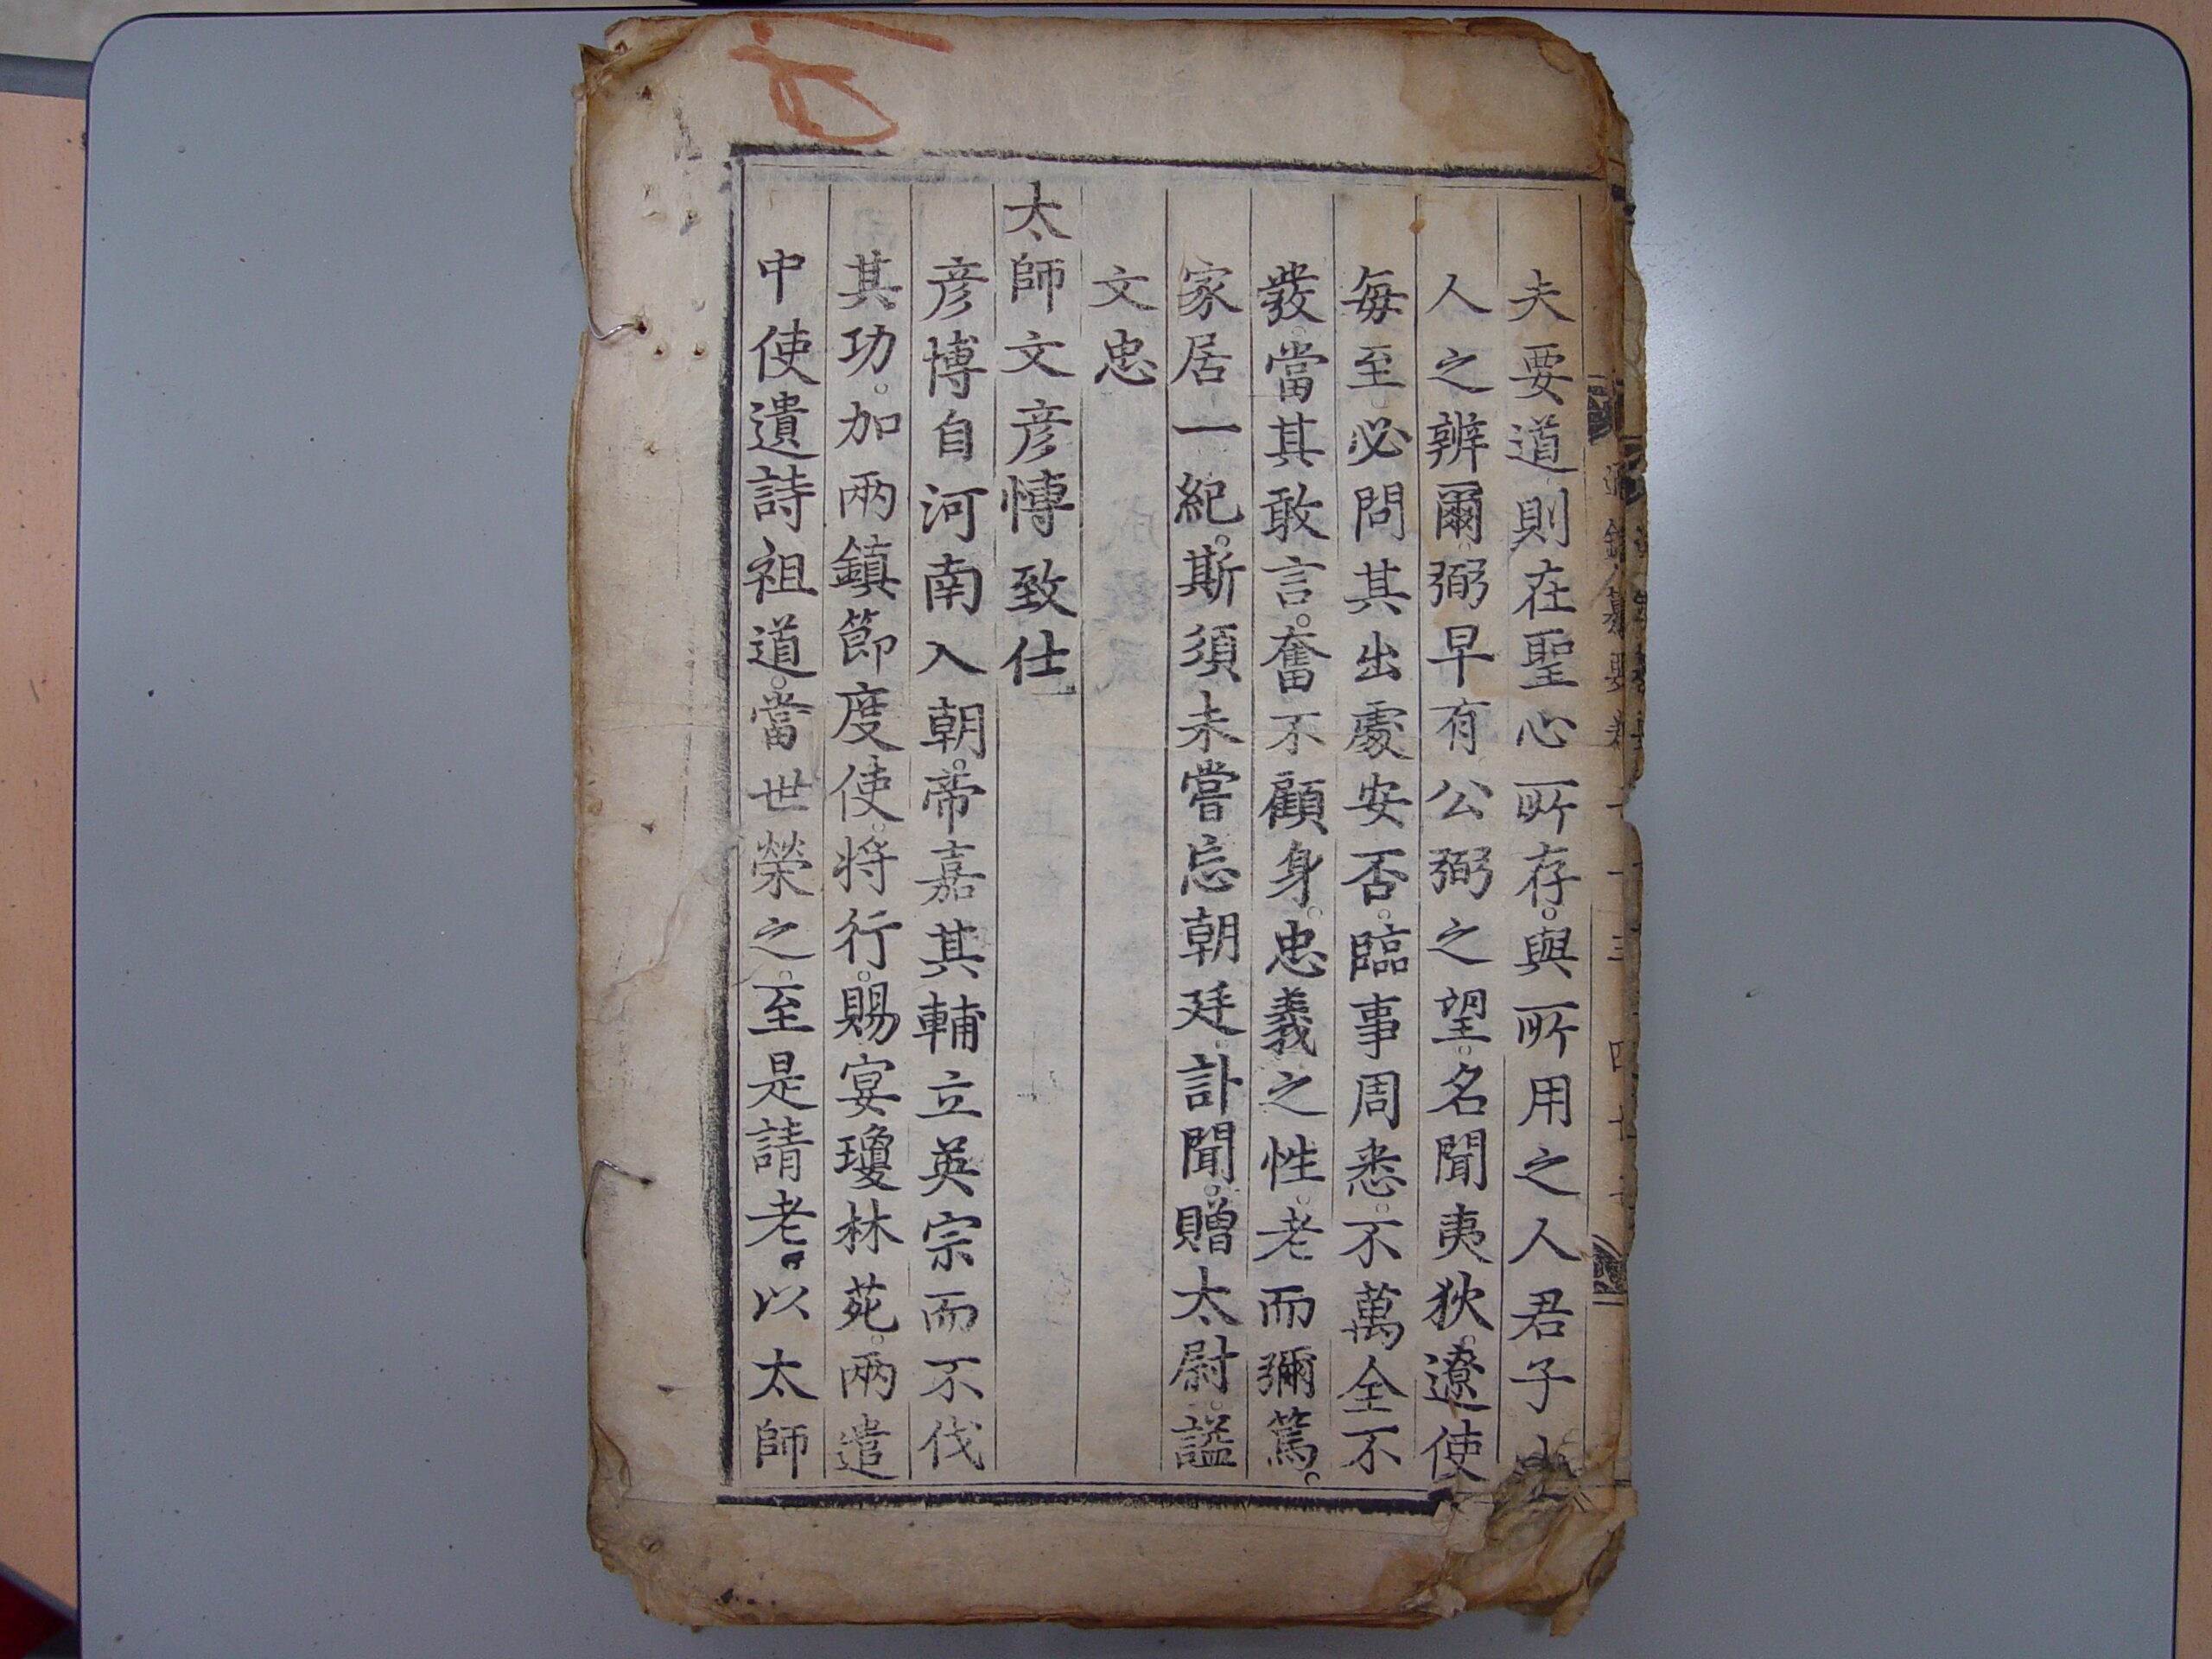 夫要道則在聖心所存與所用之人君子小
人之辨爾弼早有公弼之望名聞夷狄遼使
每至必問其出處安否臨事周悉不萬全不
發當其敢言奮不顧身忠義之性老而彌篤
家居一紀斯須未嘗忘朝廷訃聞贈太尉謚
文忠
太師文彦愽致仕
彦博自河南入朝帝嘉其輔立英宗而不伐
其功加兩鎮節度使將行賜宴瓊林苑兩遣
中使遺詩祖道當世榮之至是請老以太師